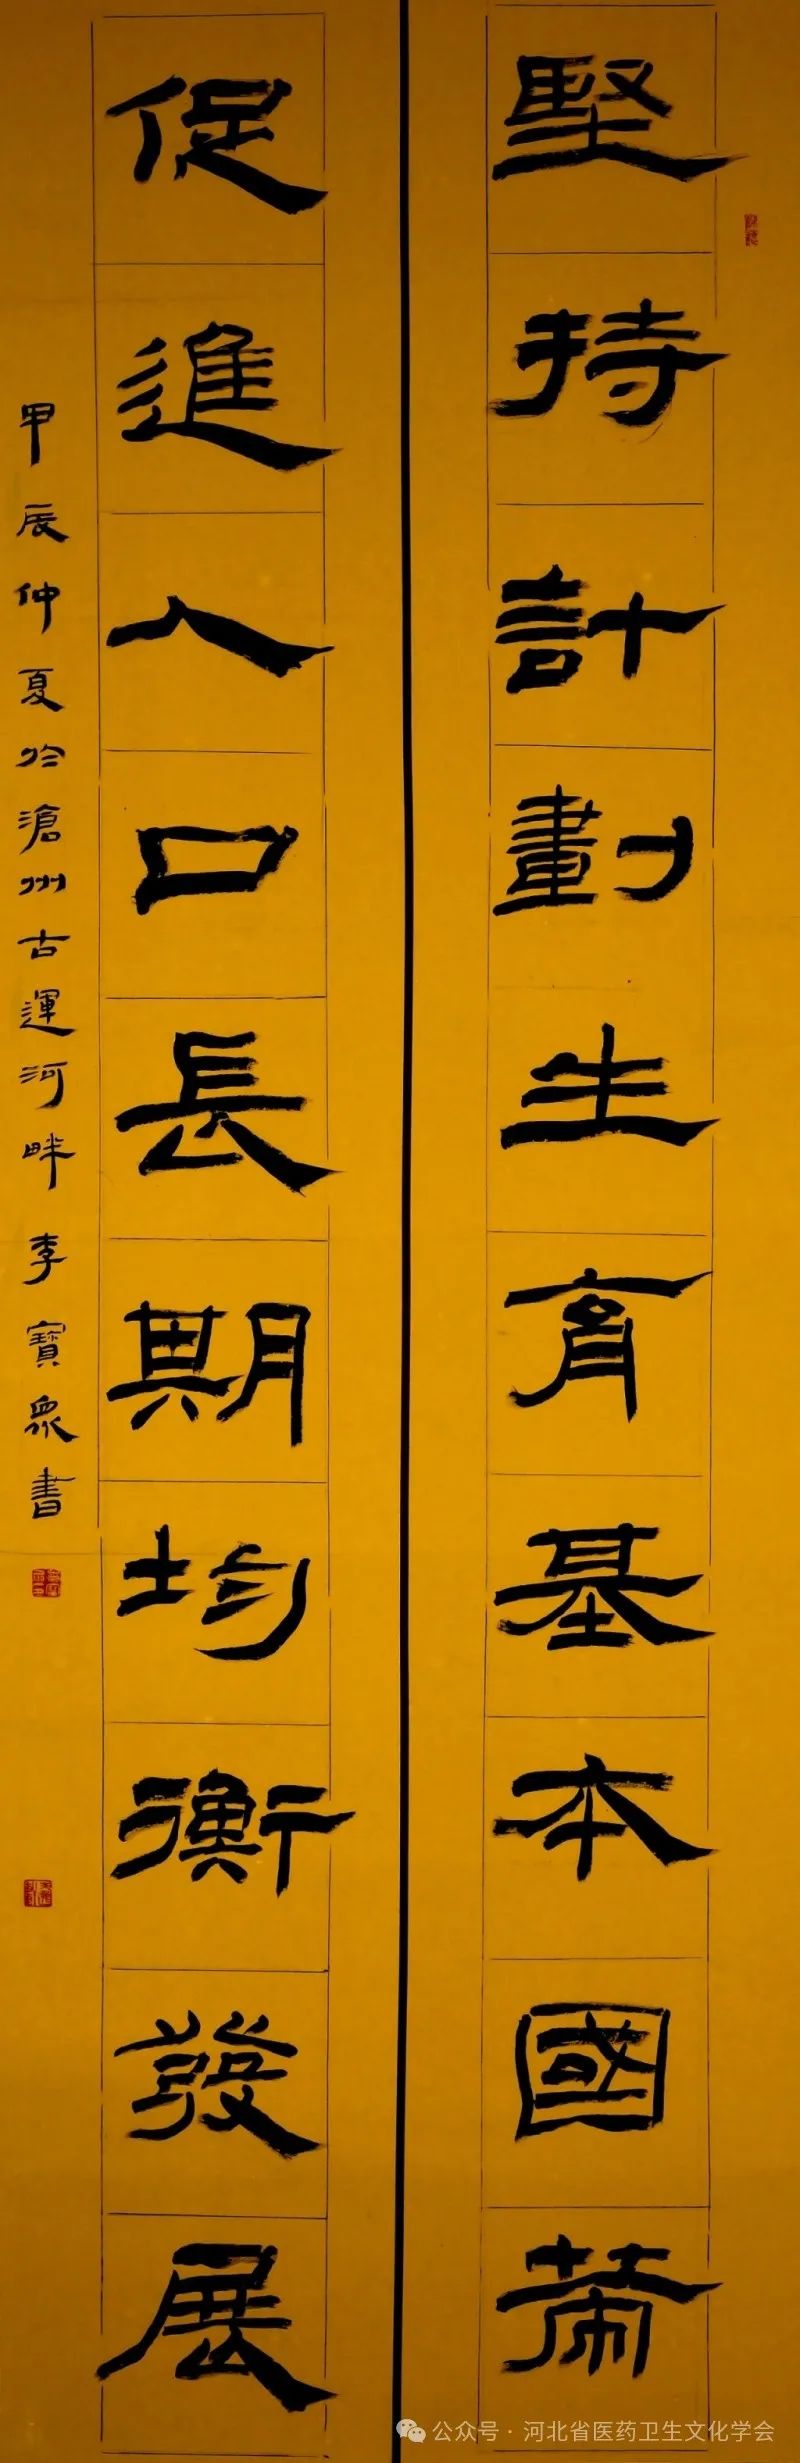 堅持計劃生育基本國策
促進人口長期均衡發展
甲辰仲夏於滄州古運河畔李寶衆書
公众号 · 河北省医药卫生文化学会